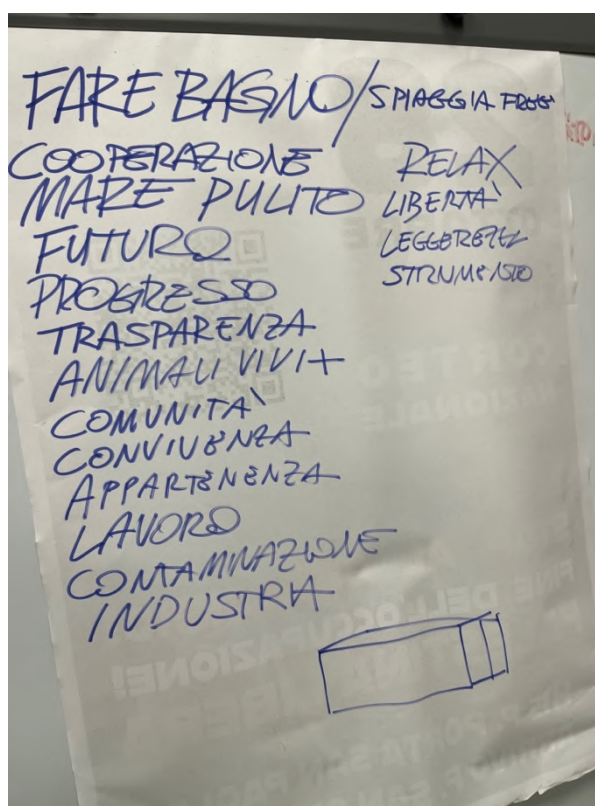 FARE BAGNO/SPIAGGIA FREE
COOPERAZIONE
MARE PULITO
FUTURO
PROGRESSO
TRASPARENZA
ANIMALI VIVI+
COMUNITÀ
CONVIVENZA
APPARTENENZA
LAVORO
CONTAMINAZIONE
INDUSTRIA
RELAX
LIBERTÀ
STRUMENTO